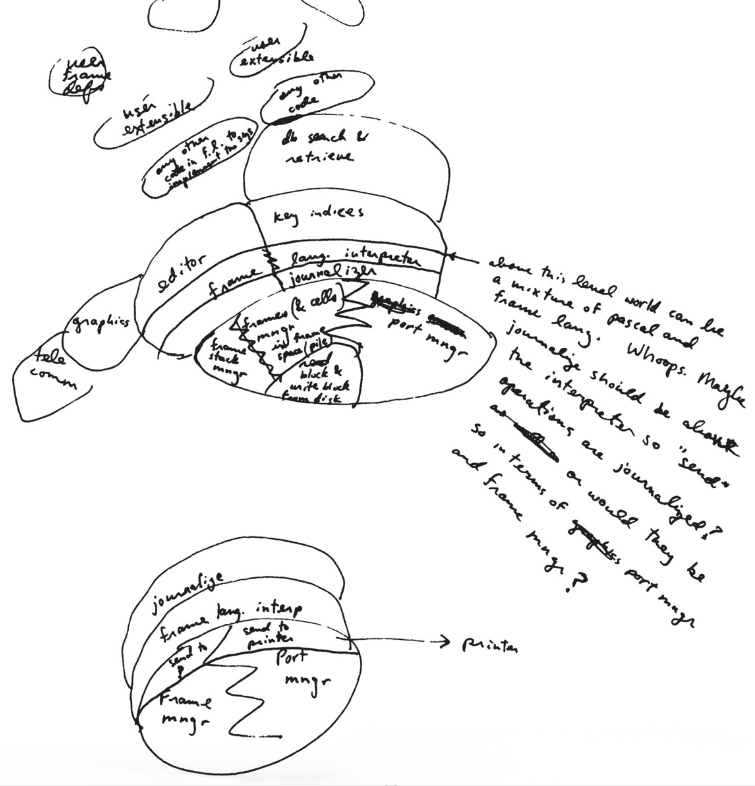 user
frame
defs
user
extensible
user
extensible
any other
code
any other
code in f.l. to
implement the sys
db search &
retrieve
key indices
editor
frame lang. interpreter
journalizer
graphics
tele
comm
frames (& cells)
mngr
in frame
space/pile
frame
stack
mngr
read
block &
write block
from disk
port mngr
above this level world can be
a mixture of pascal and
frame lang. Whoops. Maybe
journalize should be above
the interpreter so "send"
operations are journalized?
or would they be
so in terms of port mngr
and frame mngr?
journalize
frame lang. interp
send to
?
send to
printer
Port
mngr
Frame
mngr
printer